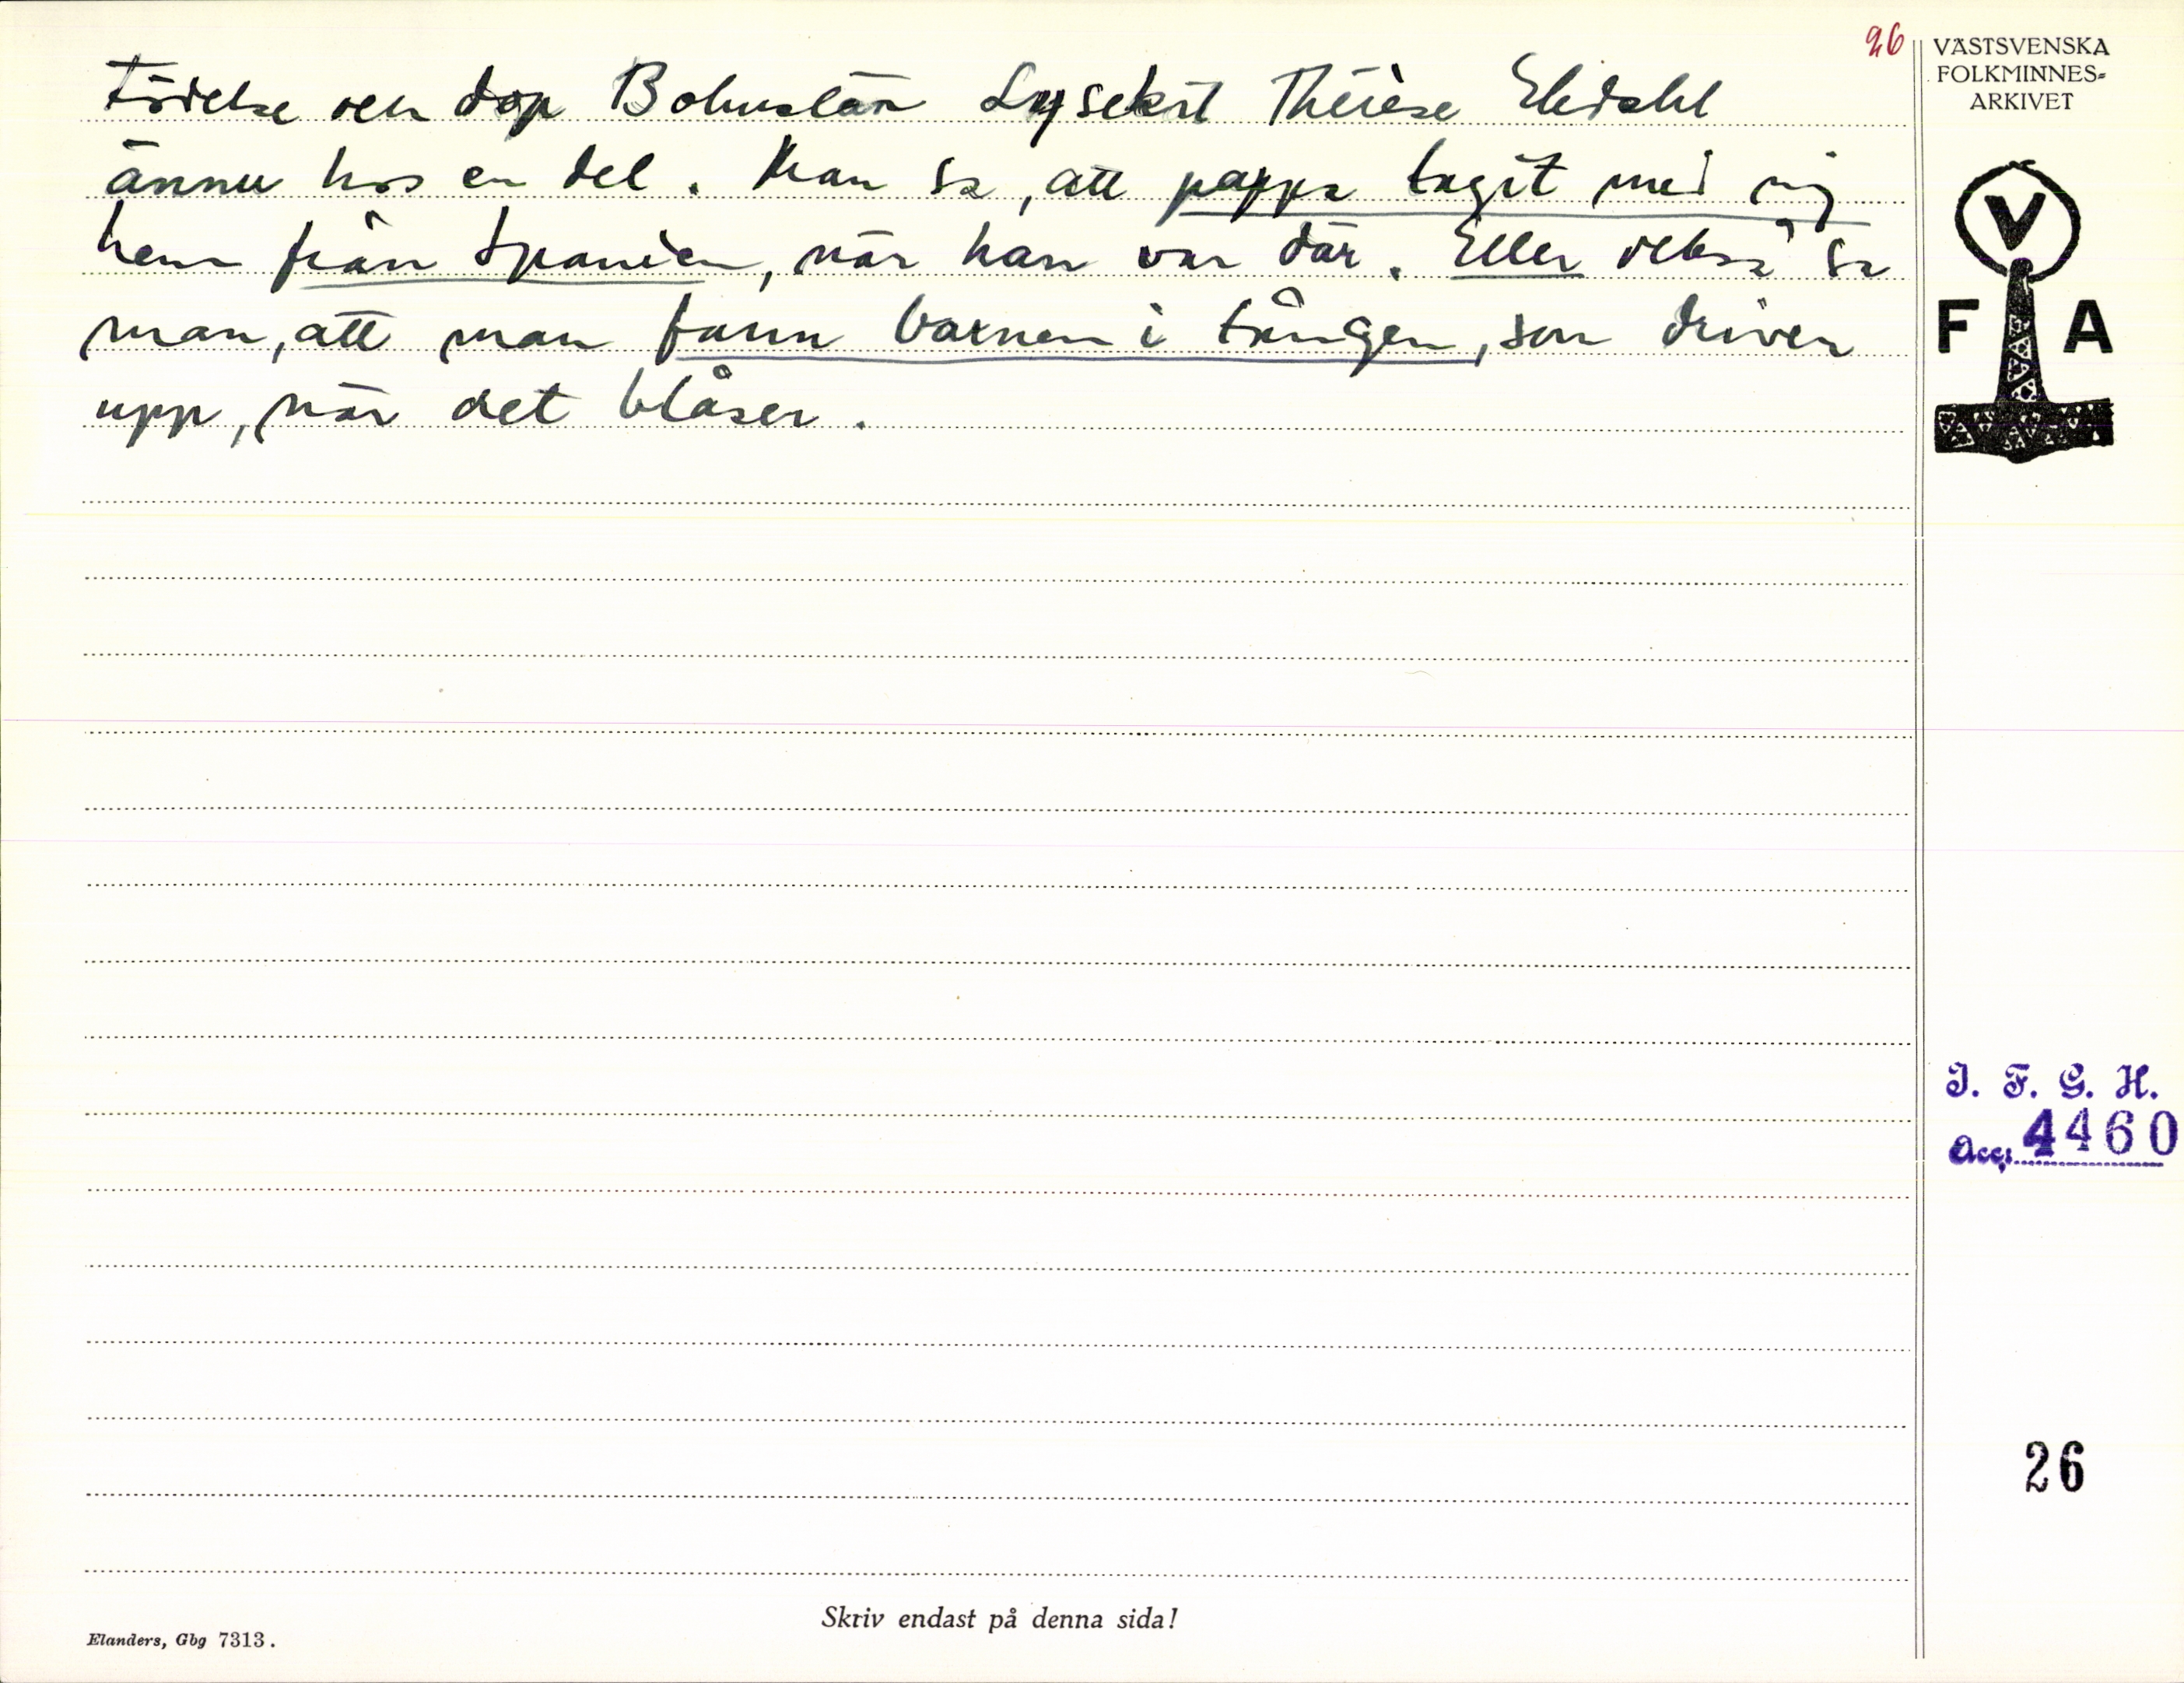 26
VÄSTSVENSKA
FOLKMINNES-
ARKIVET
Födelse och dop Bohuslän Lysekil Thérèse
ännu hos en del. Man sa, att pappa tagit med mig
hem från Spanien, när han var där. Eller också sa
man, att man fann barnen i tången, som driver
upp, när det blåser.
V
F A
I. F. G. H.
Acc. 4460
26
Skriv endast på denna sida!
Elanders, Gbg 7313.